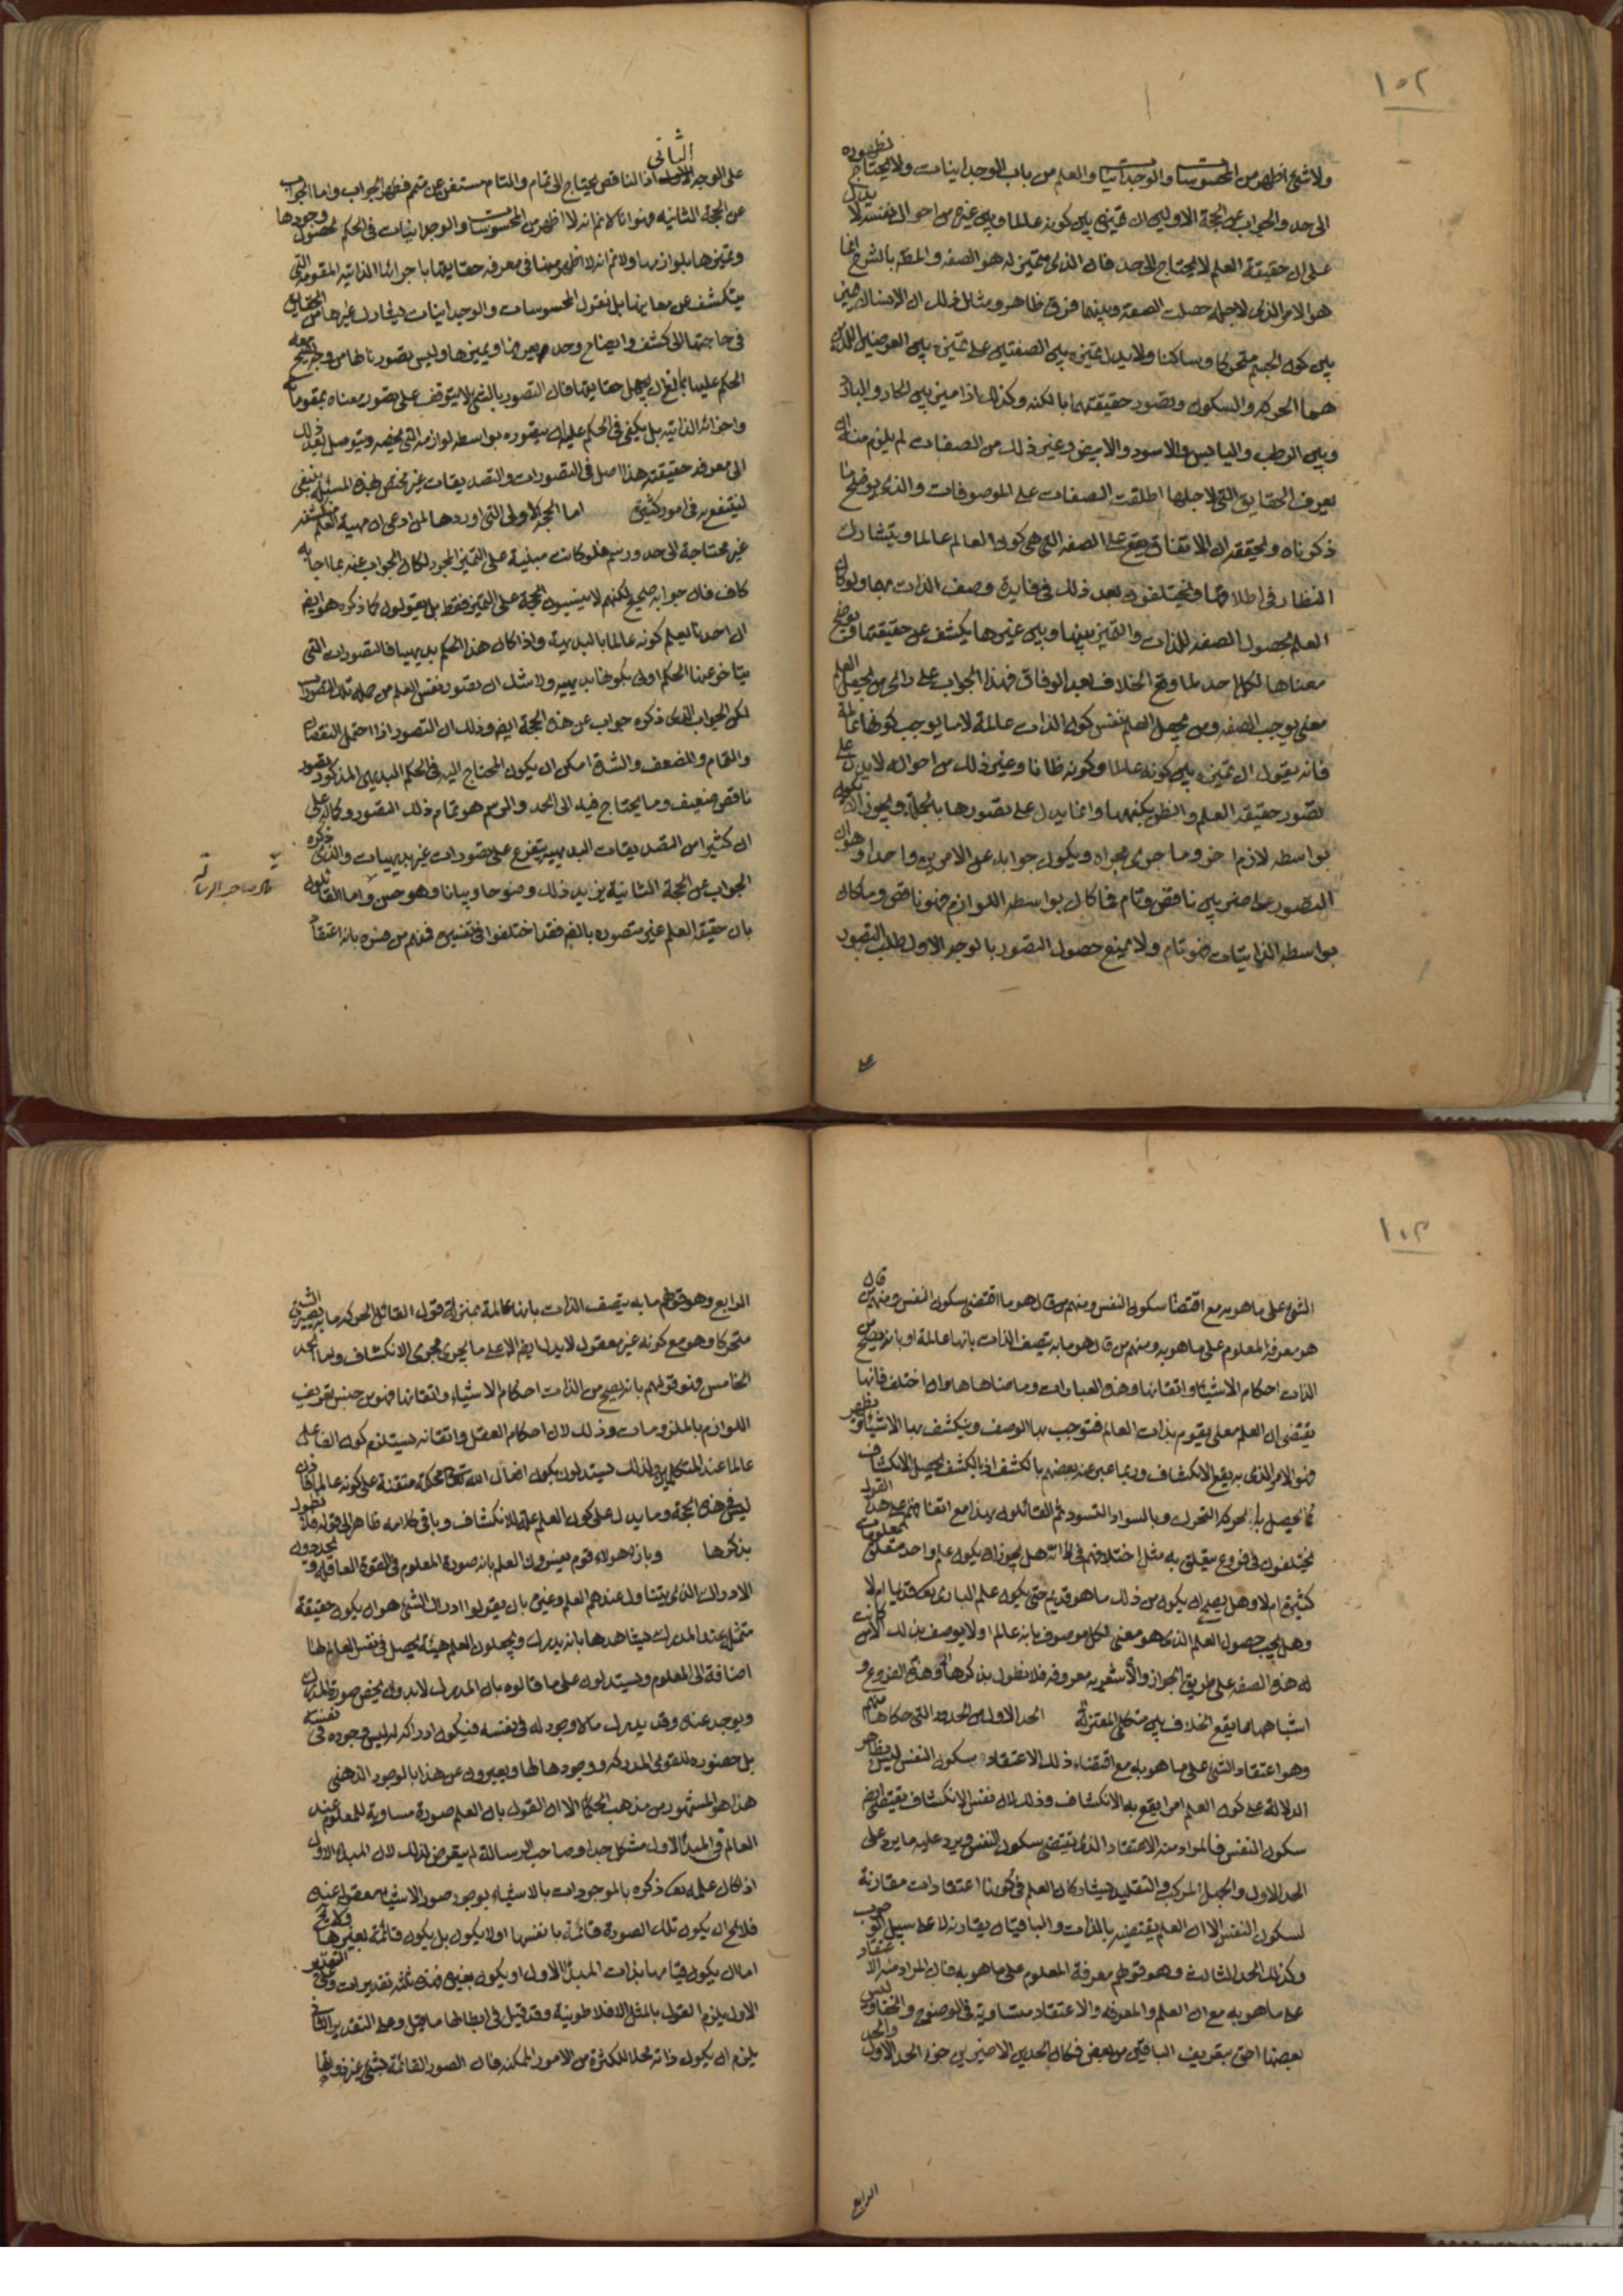 ١٥٢
ولا شئ اظهر من المحسوسات والوجدانيات والعلم من باب الوجدانيات ولا يحتاج نظهوره
الى حد والجواب عن الحجة الاولى ان تميزه بين كونه عالما وبين غيره من احوال نفسه لا يدل
على ان حقيقة العلم لا يحتاج الى حد فان الذى يتميز له هو الصفه والمط بالشرح انما
هو الامر الذى لاجله حصلت الصفة وبينهما فرق ظاهر ومثل ذلك ان الانسان يميز
بين كون الجسم متحركا وساكنا ولا يدل تميزه بين الصفتين على تميزه بين العرضين اللذين
هما الحركه والسكون وتصور حقيقتهما بالكنه وكذلك اذا ميز بين الحار والبارد
وبين الرطب واليابس والاسود والابيض وغير ذلك من الصفات لم يلزم منه ان
يعرف الحقايق التى لاجلها اطلقت الصفات على الموصوفات والذى يوضح ما
ذكرناه ويحققه ان الاتفاق يقع على الصفه التى هى كون العالم عالما ويتشارك
النظار فى اطلاقها ويختلفون بعد ذلك فى فايدة وصف الذات بها ولو كان
العلم بحصول الصفه للذات والتميز بينها وبين غيرها يكشف عن حقيقتها ويوضح
معناها لكل احد لما وقع الخلاف بعد الوفاق فهذا الجواب على رائ من يجعل العلم
معنى يوجب الصفه ومن يجعل العلم نفس كون الذات عالمة لا ما يوجب كونها عالمة
فانه يقول ان تميزه بين كونه عالما وكونه ظانا وغير ذلك من احواله لا يدل على
تصور حقيقة العلم والظن بكنهها وانما يدل على تصورها بالجملة ويجوز ان يكون
بواسطه لازم اخر وما جرى مجراه ويكون جوابه عن الامرين واحدا وهو ان
التصور على ضربين ناقص وتام فما كان بواسطه اللوازم فهو ناقص وما كان
بواسطه الذاتيات فهو تام ولا يمنع حصول التصور بالوجه الاول طلب التصور
على
على الوجه الثانى اذ الناقص يحتاج الى تمام والتام مستغن عن متمم فظهر الجواب واما الجواب
عن الحجة الثانيه فهو انا لا نم انه لا اظهر من المحسوسات والوجدانيات فى الحكم بحصول وجودها
وتميزها بلوازمها ولا نم انه لا اظهر منها فى معرفه حقايقها باجزائها الذاتيه المقومه التى
يتكشف عن معانيها بل نقول المحسوسات والوجدانيات تشارك غيرها من الحقايق
فى حاجتها الى كشف وايضاح وحد يعرفها ويميزها وليس تصورنا لها من وجه يصح معه
الحكم عليها بمانع ان يجهل حقايقها فان التصور بالشئ لا يتوقف على تصور معناه بمقوماته
واجزائه الذاتيه بل يكفى فى الحكم عليه ان يتصوره بواسطه لوازمه التى تخصه ويتوصل بعد ذلك
الى معرفه حقيقته هذا اصل فى التصورات والتصديقات غير مختص بهذه المسئله ينبغى
لينتفع به فى امور كثيرة اما الحجة الاولى التى اوردها لمن ادعى ان مهية العلم منكشفه
غير محتاجة الى حد ورسم فلو كانت مبنية على التميز المجرد لكان الجواب عنه بما اجابه
كاف فان جوابه صحيح لكنهم لا يبنون الحجة على التميز فقط بل يقولون كما ذكره هو ايض
ان احدنا يعلم كونه عالما بالبديهة واذا كان هذا الحكم بديهيا فالتصورات التى
يتاخر عنها الحكم اولى بكونها بديهيه ولا شك ان تصور نفس العلم من جملة تلك التصورات
لكن الجواب الذى ذكره جواب عن هذه الحجة ايض وذلك ان التصور اذا احتمل النقصان
والتمام والضعف والشدة امكن ان يكون المحتاج اليه فى الحكم البديهى المذكور تصور
ناقص ضعيف وما يحتاج فيه الى الحد والرسم هو تمام ذلك التصور وكماله على
ان كثيرا من التصديقات البديهيه يتفرع على تصورات غير بديهيات والذى ذكره
الجواب عن الحجة الثانية يزايد ذلك وضوحا وبيانا وهو حسن واما القائلون
بان حقيقة العلم غير متصوره بالبديهه فقد اختلفوا فى تفسيره فمنهم من فسره بانه اعتقاد
قال صاحب الرسالة
١٠٣
الشئ على ما هو به مع اقتضا سكون النفس ومنهم من قال هو ما اقتضى سكون النفس ومنهم من قال
هو معرفة المعلوم على ما هو به ومنهم من قال هو ما به يتصف الذات بانها عالمة او بانه يصح من
الذات احكام الاشيا واتقانها وهذه العبارات وما ضاهاها وان اختلف فانها
يقتضى ان العلم معنى يقوم بذات العالم فتوجب بها الوصف وينكشف بها الاشيا ويظهر
فهو الامر الذى به يقع الانكشاف وربما عبر عنه بعضهم بالكشف اذ بالكشف يحصل الانكشاف
كما يحصل بالحركه التحرك وبالسواد التسود ثم القائلون بهذا مع اتفاقهم على هذا القول
يختلفون فى فروع يتعلق به مثل اختلافهم فى انه هل يجوز ان يكون علم واحد متعلق بمعلومات
كثيرة ام لا وهل يصح ان يكون من ذلك ما هو قديم حتى يكون علم البارى تعه قديما ام لا
وهل يجب حصول العلم الذى هو معنى لكل موصوف بانه عالم او لا يوصف بذلك الا من كانت
له هذه الصفه على طريق الجواز والأشعريه معروفه فلا نطول بذكرها وهذه الفروع و
اشباهها مما يقع الخلاف بين متكلمى المعتزلة الحد الاول من الحدود التى حكاها عنهم
وهو اعتقاد الشئ على ما هو به مع اقتضاء ذلك الاعتقاد سكون النفس ليس بظاهر
الدلالة على كون العلم امرا يقع به الانكشاف وذلك لان نفس الانكشاف يقتضى ايض
سكون النفس فالمراد منه الاعتقاد الذى يقتضى سكون النفس ويرد عليه ما يرد على
الحد الاول والجهل المركب والتقليد يشاركان العلم فى كونها اعتقادات مقارنة
لسكون النفس الا ان العلم يقتضيه بالذات والباقيان يقارنه لا على سبيل الوجوب
وكذلك الحد الثالث وهو قولهم معرفة المعلوم على ما هو به فان المراد منه الاعتقاد
على ما هو به مع ان العلم والمعرفه والاعتقاد متساوية فى الوضوح والخفا وليس
بعضها احق بتعريف الباقى من بعض فكان الحدين الاخيرين جزء الحد الاول والحد
الرابع
الرابع وهو قولهم ما به يتصف الذات بانها عالمة بمنزلة قول القائل الحركه ما به يصير الشئ
متحركا وهو مع كونه غير معقول لا يدل ايض الا على ما يجرى مجرى الانكشاف واما الحد
الخامس فهو قولهم بانه يصح من الذات احكام الاشياء واتقانها فهو من جنس تعريف
اللوازم بالملزومات وذلك لان احكام الفعل واتقانه يستلزم كون الفاعل
عالما عند المتكلمين ولذلك يستدلون بكون افعال الله تعالى محكمة متقنة على كونه عالما فاذن
ليس فى هذه الحجة وما يدل على كون العلم علة الانكشاف وباقى كلامه ظاهر الى قوله فلا نطول
بذكرها وبازاء هولاء قوم يعنون العلم بانه صورة المعلوم فى القوة العاقله ويحددون
الادراك الذى يتناول عندهم العلم وغيره بان يقولوا ادراك الشئ هو ان يكون حقيقة
متمثلة عند المدرك يشاهدها بانه يدرك ويجعلون العلم هيئة يحصل فى نفس العالم لها
اضافة الى المعلوم ويستدلون على ما قالوه بان المدرك لابد وان يحضر صورة المدرك
ويوجد عنده وقد يدرك ما لا وجود له فى نفسه فيكون ادراكه له ليس وجوده فى نفسه
بل حضوره للقوى المدركه ووجودها لها ويعبرون عن هذا بالوجود الذهنى
هذا هو المشهور من مذهب الحكماء الا ان القول بان العلم صورة مساوية للمعلوم عند
العالم فى المبدأ الاول مشكل جدا وصاحب الرسالة لم يتعرض لذلك لان المبدأ الاول
اذا كان علمه تعه ذكره بالموجودات بالاشياء بوجود صور الاشيا معقولة عنده
فلا يخ ان يكون تلك الصورة قائمة بانفسها او لا يكون بل يكون قائمة بغيرها ولا يخ
اما ان يكون قيامها بذات المبدأ الاول او يكون بغيره فهذه ثلثه تقديرات وعلى التقدير
الاول يلزم القول بالمثل الافلاطونية وقد قيل فى ابطالها ما قيل وعلى التقدير الثانى
يلزم ان يكون ذاته محلا للكثرة من الامور الممكنه فان الصور القائمة بشئ غير ذواتها